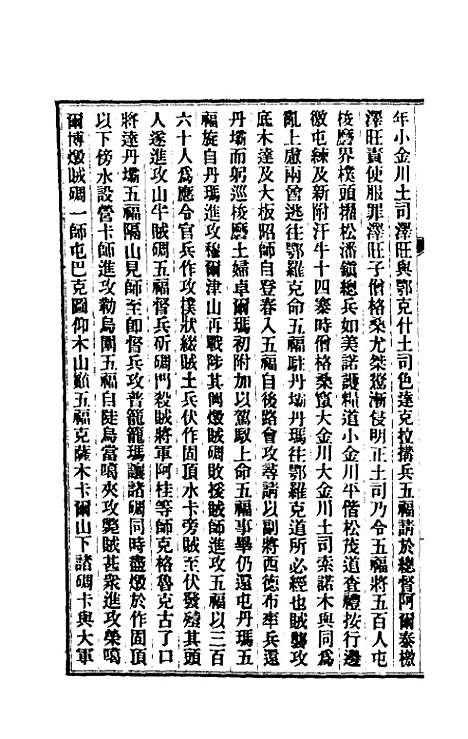 年小金川土司澤旺與鄂克什土司色達克拉搆兵五福請於總督阿爾泰檄
澤旺責使服罪澤旺子僧格桑尤桀驁漸侵明正土司乃令五福將五百人屯
梭磨界樸頭攝松潘鎮總兵如美諾護糧道小金川平偕松茂道查禮按行邊
徼屯練及新附汗牛十四寨時僧格桑竄大金川大金川土司索諾木與同爲
亂上慮兩酋逃往鄂羅克命五福駐丹壩丹瑪往鄂羅克道所必經也賊襲攻
底木達及大板昭師自登春入五福自後路會攻尋請以副將西德布率兵還
丹壩而躬巡梭磨土婦卓爾瑪初附加以駕馭上命五福事畢仍還屯丹瑪五
福旋自丹瑪進攻穆爾津山再戰陟其㠌燬賊碉敗援賊進攻五福以三百
六十人爲應令官兵作攻撲狀綴賊土兵伏作固頂水卡旁賊至伏發殪其頭
人遂進攻山牛賊碉五福督兵斫碉門殺賊將軍阿桂等師克格魯克古了口
將達丹壩五福隔山見師至卽督兵攻普籠籠瑪讓諸碉同時盡燬於作固頂
以下傍水設營卡師進攻勒烏圍五福自陡烏當噶夾攻斃賊甚衆進攻榮噶
爾博燬賊碉一師屯巴克圖仰木山巔五福克薩木卡爾山下諸碉卡與大軍